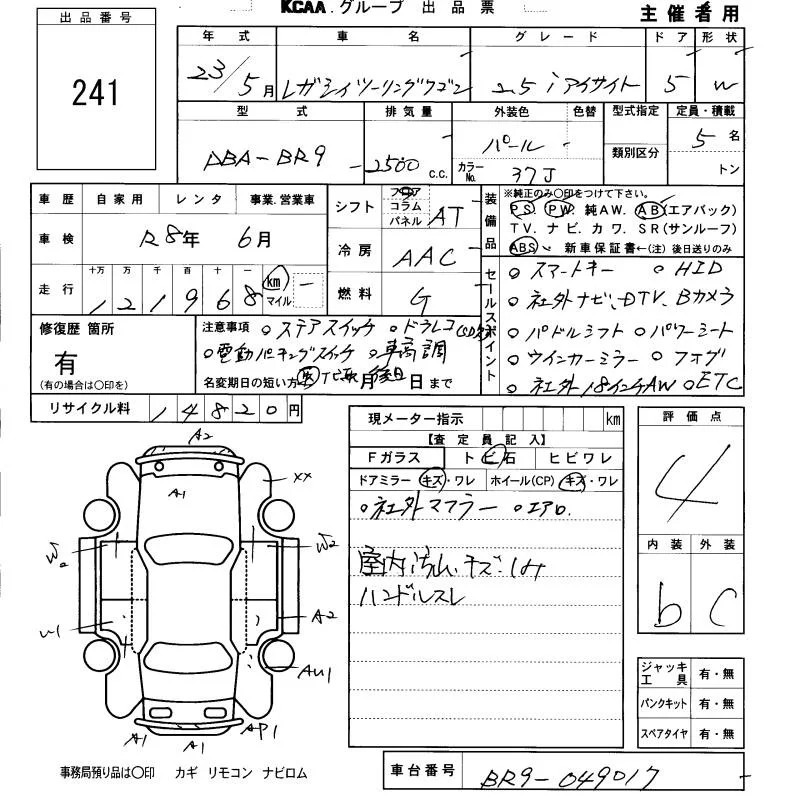 出品番号
241
KCAA.グループ 出品票
主催者用
年式 車名 グレード ドア 形状
23/5月 レガシィツーリングワゴン 2.5 i アイサイト 5 W
型式 排気量 外装色 色替 型式指定 定員・積載
DBA-BR9 2500 c.c. パール 5名
カラーNo. 37J 類別区分 トン
車歴 自家用 レンタ 事業.営業車
車検 R8年 6月
走行 十万 万 千 百 十 一 km マイル
121968
シフト フロア コラム パネル AT
冷房 AAC
燃料 G
装備品
※純正のみ○印をつけて下さい。
PS. PW. 純AW. AB(エアバック)
TV. ナビ. カワ. SR(サンルーフ)
ABS. 新車保証書←(注)後日送りのみ
セールスポイント
○スマートキー ○HID
○社外ナビ、DTV、Bカメラ
○パドルシフト ○パワーシート
○ウインカーミラー ○フォグ
○社外18インチAW ○ETC
修復歴 箇所
有
(有の場合は○印を)
注意事項 ○ステアスイッチ ○ドラレコ
○電動パーキングスイッチ ○車高調
名変期日の短い方 月 日まで
後日
リサイクル料 14820円
現メーター指示 km
【査定員記入】
Fガラス トビ石 ヒビワレ
ドアミラー キズ・ワレ ホイール(CP) キズ・ワレ
○社外マフラー ○エアロ
室内汚れ、キズ、シミ
ハンドルスレ
評価点
4
内装 外装
b C
ジャッキ工具 有・無
パンクキット 有・無
スペアタイヤ 有・無
A2
A1
XX
W2
W2
A2
U1
AU1
A1
A1
AP1
事務局預り品は○印 カギ リモコン ナビロム
車台番号 BR9-049017